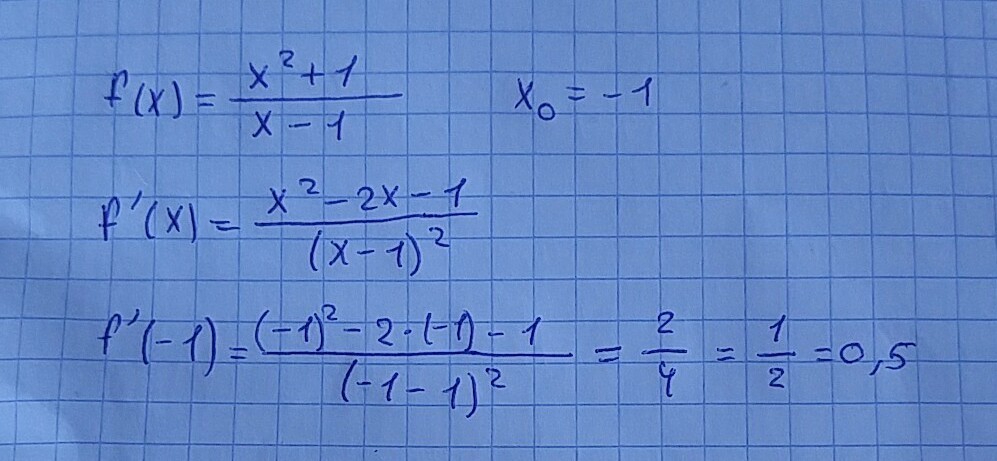 f(x) = (x² + 1)/(x − 1)    x₀ = −1
f′(x) = (x² − 2x − 1)/(x − 1)²
f′(−1) = ((−1)² − 2·(−1) − 1)/(−1 − 1)² = 2/4 = 1/2 = 0,5